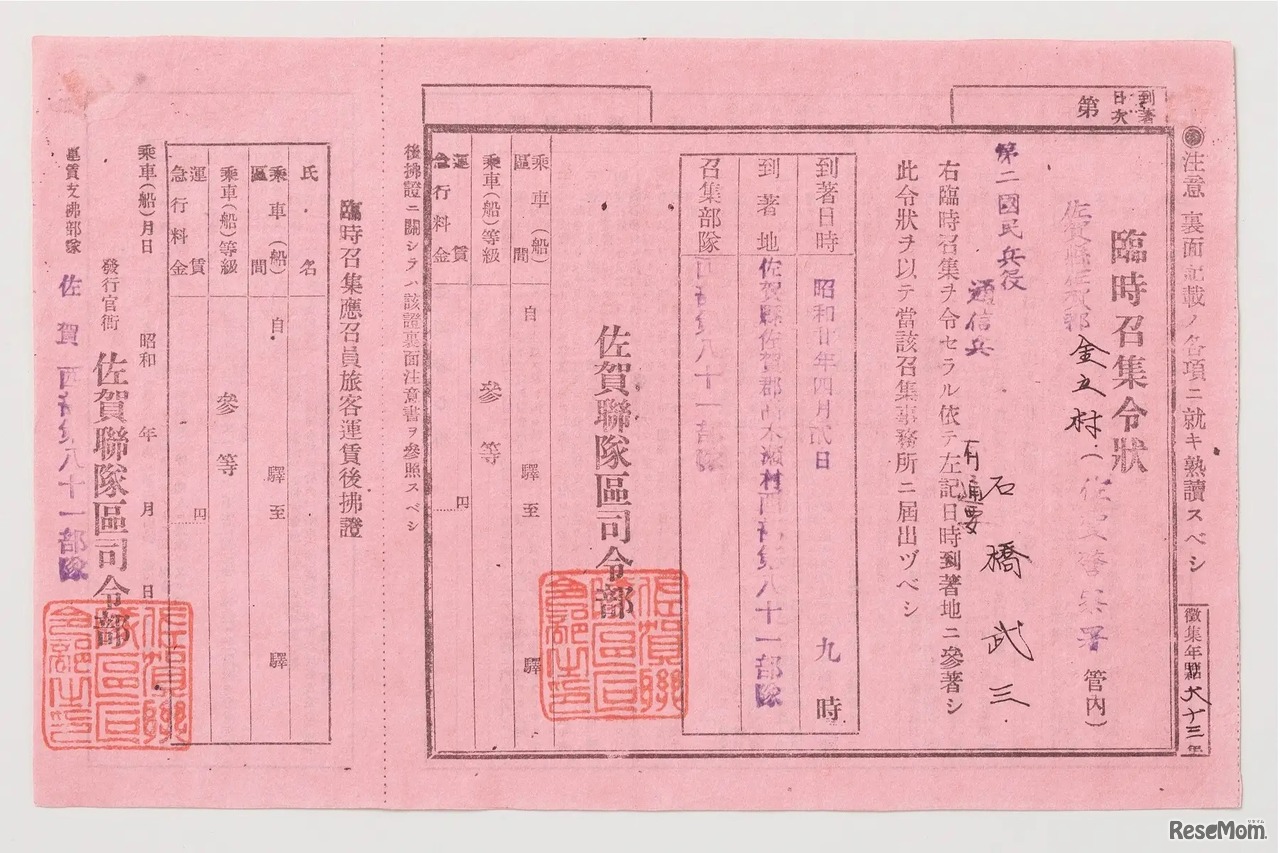 注意 裏面記載ノ各項ニ就キ熟讀スベシ
徴集年 大十三年
到著
日次
第
臨時召集令狀
佐賀縣佐賀郡金立村(佐賀警察署管内)
第二國民兵役
通信兵
石橋武三
右臨時召集ヲ令セラル依テ左記日時到著地ニ參著シ
此令狀ヲ以テ當該召集事務所ニ屆出ヅベシ
到著日時 昭和廿年四月貳日 九時
到著地 佐賀縣佐賀郡 木瀬村西部第八十一部隊
召集部隊 西部第八十一部隊
佐賀聯隊區司令部
乘車(船)區間 自 驛至 驛
乘車(船)等級 參等
運賃
急行料金 円
後拂證ニ關シテハ該證裏面注意書ヲ參照スベシ
臨時召集應召員旅客運賃後拂證
氏名
乘車(船)區間 自 驛至 驛
乘車(船)等級 參等
運賃
急行料金 円
乘車(船)月日 昭和 年 月 日
發行官衙 佐賀聯隊區司令部
運賃支拂部隊 佐賀 西部第八十一部隊
ReseMom.